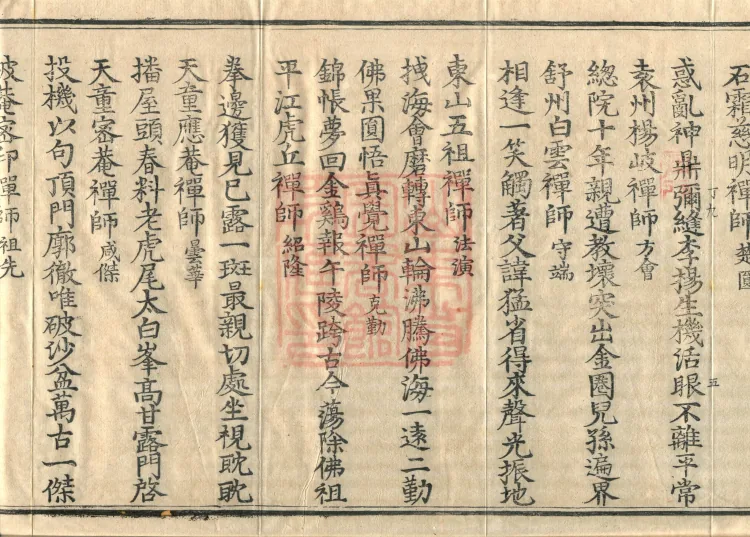 石霜慈明禪師 楚圓
惑亂神鼎彌縫李揚生機活眼不離平常
袁州楊岐禪師 方會
總院十年親遭教壞突出金圈兒孫遍界
舒州白雲禪師 守端
相逢一笑觸著父諱猛省得來聲光振地
東山五祖禪師 法演
拽海會磨轉東山輪沸騰佛海一遠二勤
佛果圓悟真覺禪師 克勤
錦帳夢回金鷄報午陵跨古今蕩除佛祖
平江虎丘禪師 紹隆
拳邊獲見已露一斑最親切處坐視眈眈
天童應菴禪師 曇華
播屋頭春料老虎尾太白峯高甘露門啓
天童密菴禪師 咸傑
投機以句頂門廓徹唯破沙盆萬古一傑
破菴密印禪師 祖先
丁九
五